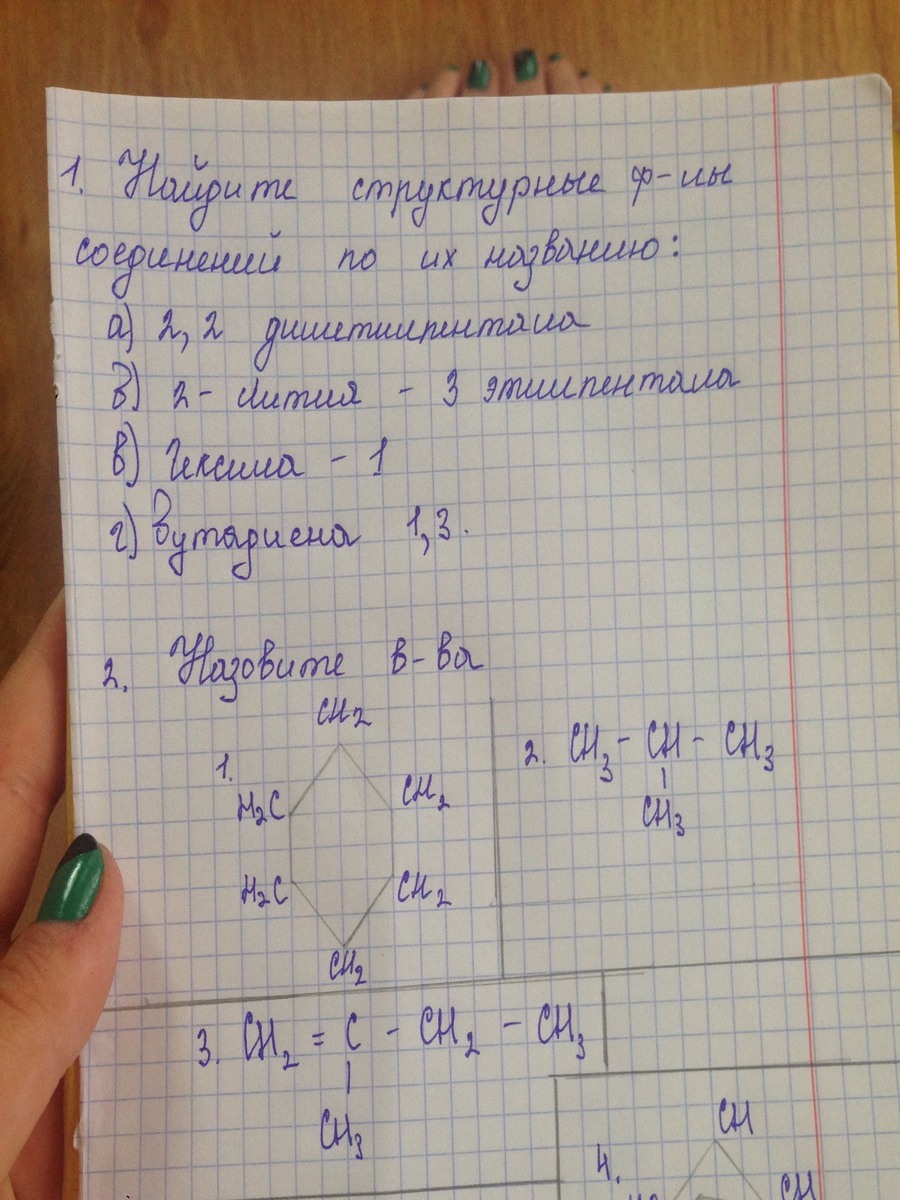 1. Найдите структурные ф-лы
соединений по их названию:
а) 2,2 диметилпентана
б) 2 - метил - 3 этилпентана
в) Гексина - 1
г) Бутадиена 1,3.
2. Назовите в-ва
1.
CH2
H2C
CH2
H2C
CH2
CH2
2. CH3 - CH - CH3
|
CH3
3. CH2 = C - CH2 - CH3
|
CH3
4.
CH
CH